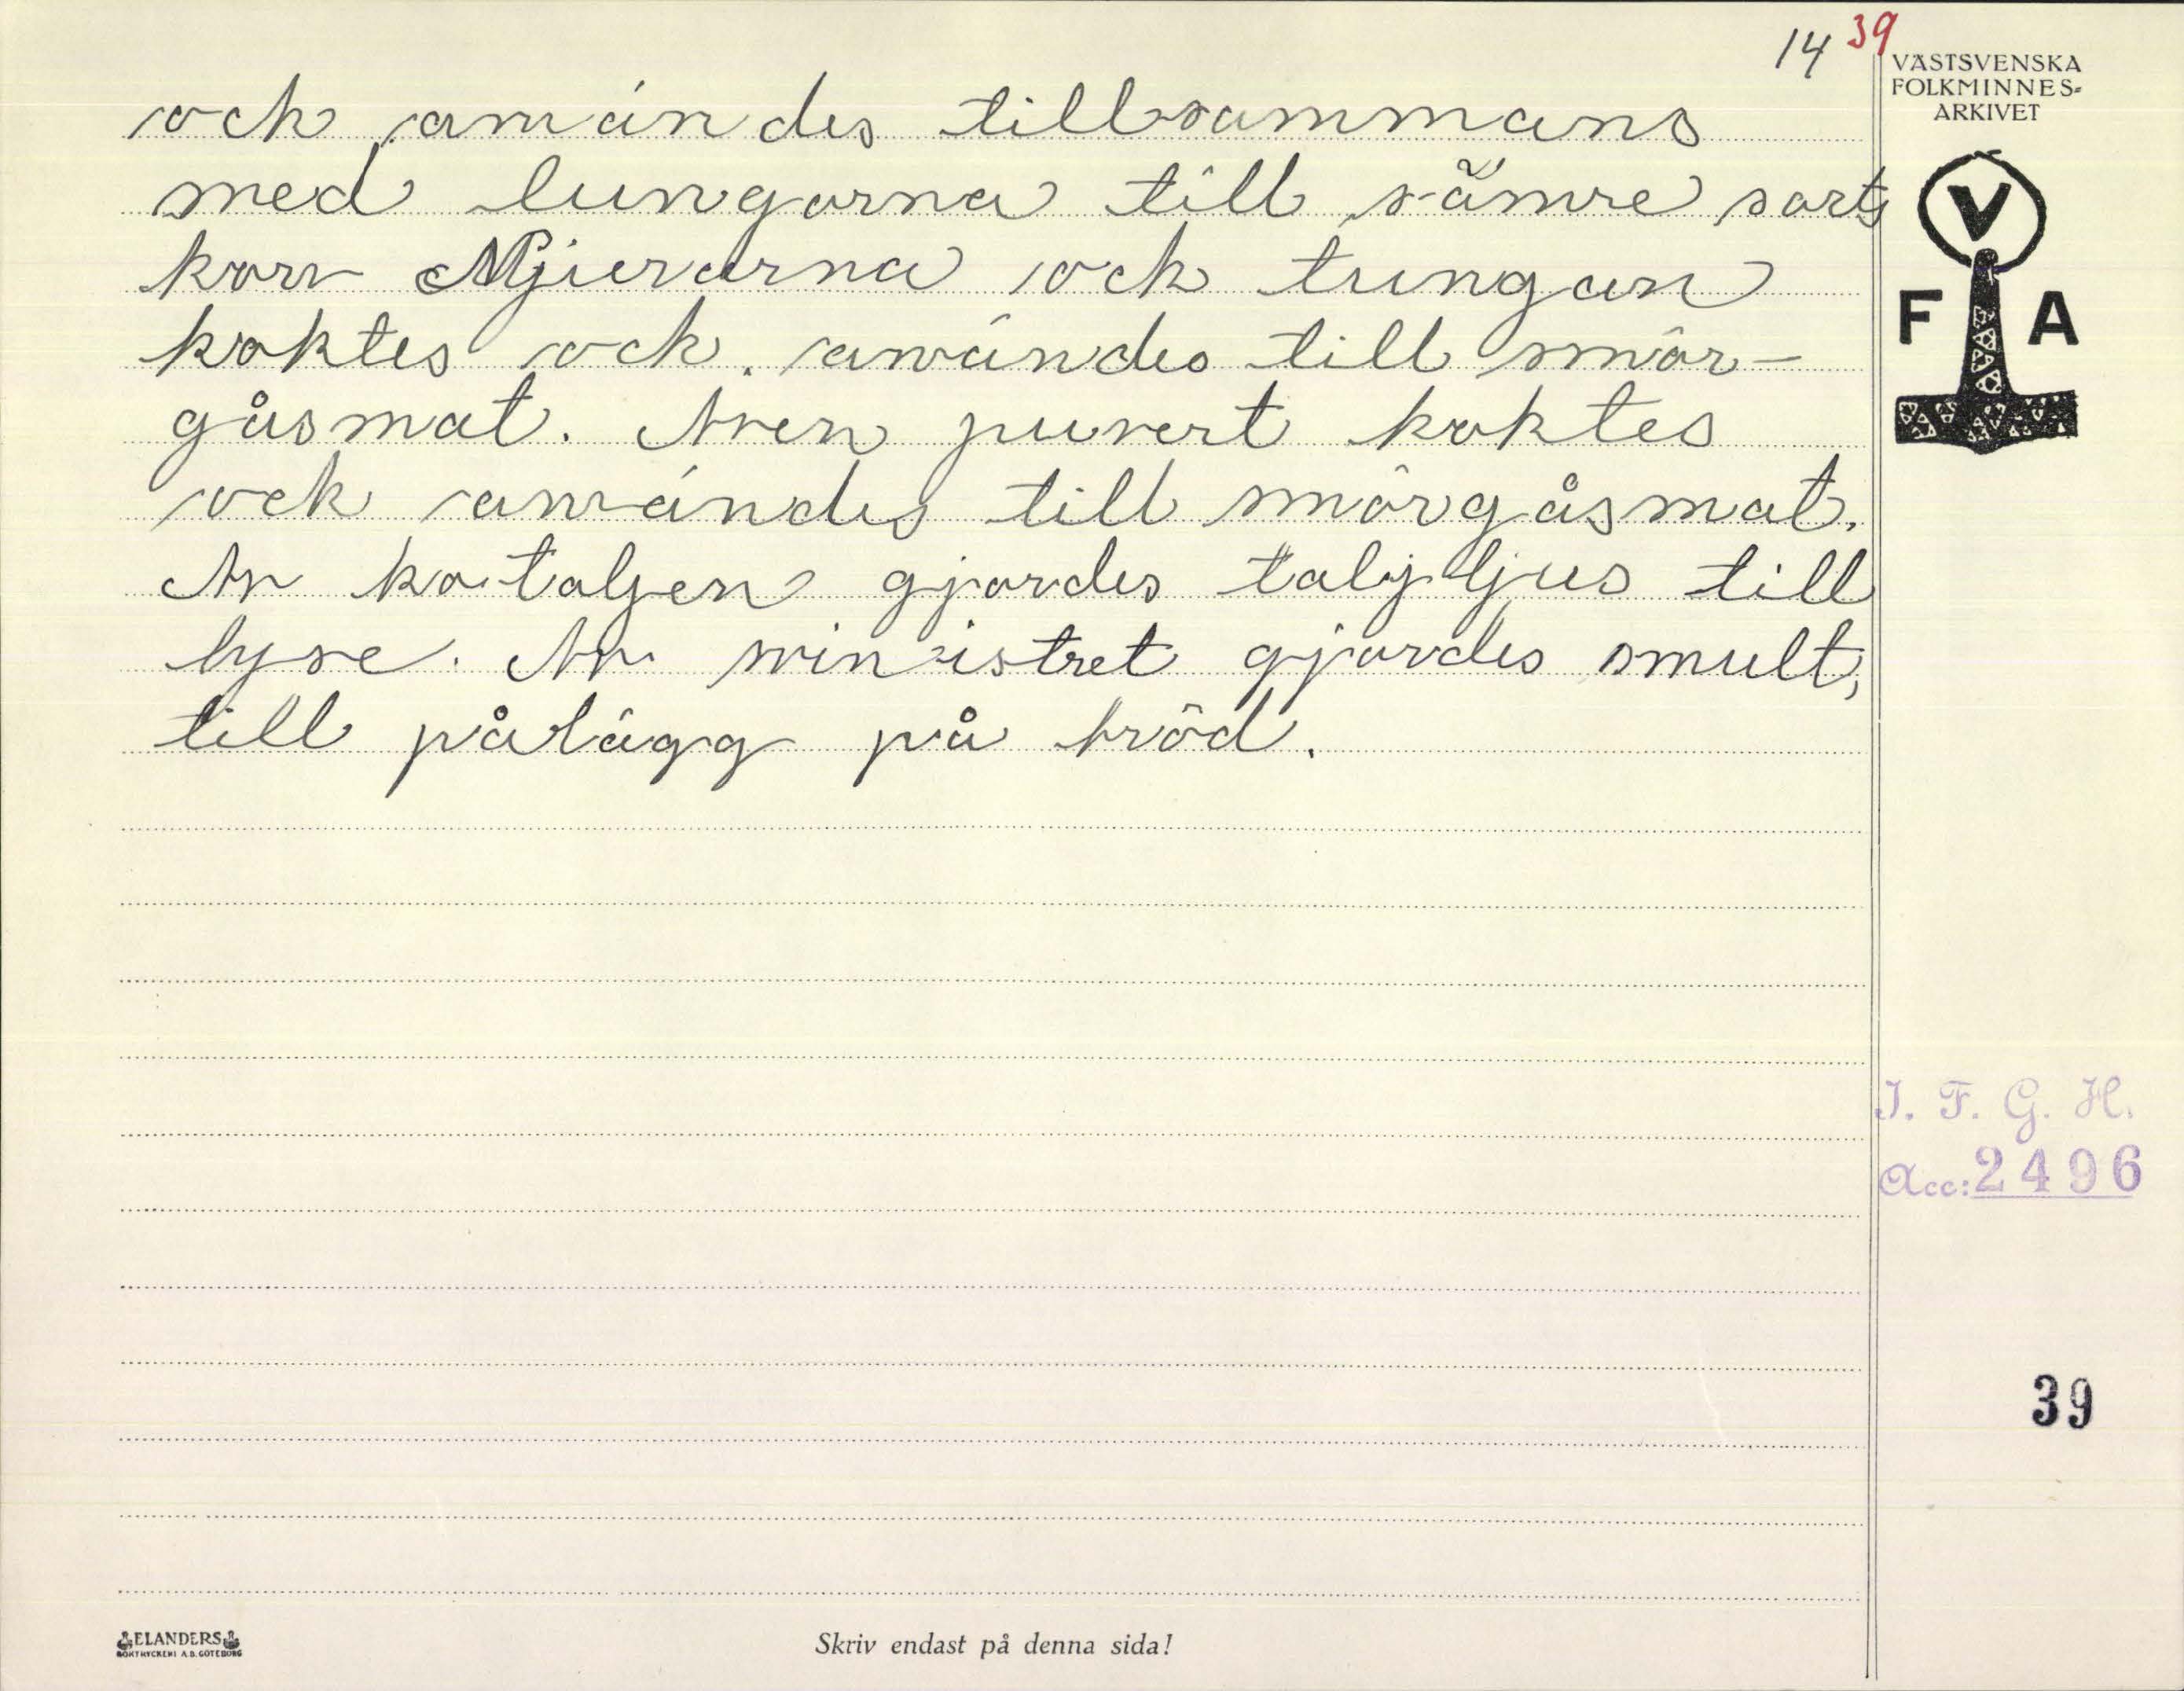 14 39
VÄSTSVENSKA
FOLKMINNES-
ARKIVET
och användes tillsammans
med lungorna till sämre sorts
korv Njurarna och tungan
koktes och. användes till smör-
gåsmat. Även juvert koktes
och användes till smörgåsmat.
Av kotalgen gjordes talgljus till
lyse. Av svinistret gjordes smult,
till pålägg på bröd.
V
F A
I. F. G. H.
Acc: 2496
39
ELANDERS
BOKTRYCKERI A.B. GÖTEBORG
Skriv endast på denna sida!